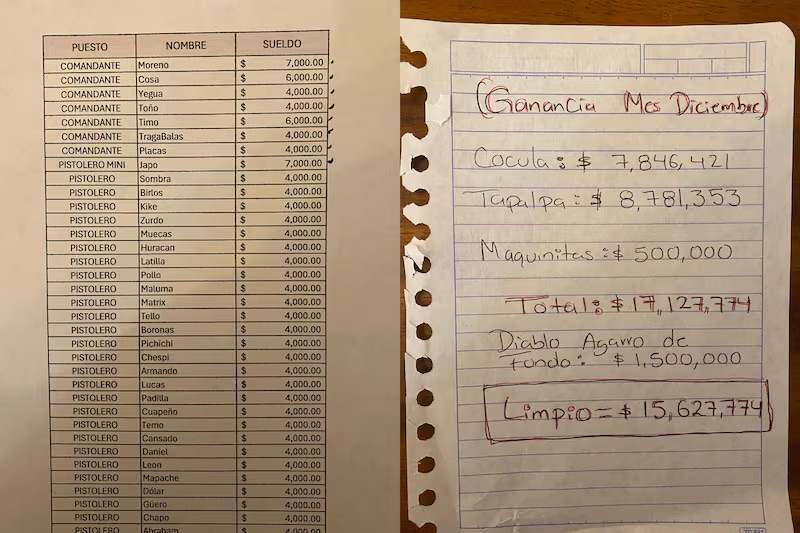 PUESTO NOMBRE SUELDO
COMANDANTE Moreno $ 7,000.00
COMANDANTE Cosa $ 6,000.00
COMANDANTE Yegua $ 4,000.00
COMANDANTE Toño $ 4,000.00
COMANDANTE Timo $ 6,000.00
COMANDANTE TragaBalas $ 4,000.00
COMANDANTE Placas $ 4,000.00
PISTOLERO MINI Japo $ 7,000.00
PISTOLERO Sombra $ 4,000.00
PISTOLERO Birlos $ 4,000.00
PISTOLERO Kike $ 4,000.00
PISTOLERO Zurdo $ 4,000.00
PISTOLERO Muecas $ 4,000.00
PISTOLERO Huracan $ 4,000.00
PISTOLERO Latilla $ 4,000.00
PISTOLERO Pollo $ 4,000.00
PISTOLERO Maluma $ 4,000.00
PISTOLERO Matrix $ 4,000.00
PISTOLERO Tello $ 4,000.00
PISTOLERO Boronas $ 4,000.00
PISTOLERO Pichichi $ 4,000.00
PISTOLERO Chespi $ 4,000.00
PISTOLERO Armando $ 4,000.00
PISTOLERO Lucas $ 4,000.00
PISTOLERO Padilla $ 4,000.00
PISTOLERO Cuapeño $ 4,000.00
PISTOLERO Temo $ 4,000.00
PISTOLERO Cansado $ 4,000.00
PISTOLERO Daniel $ 4,000.00
PISTOLERO Leon $ 4,000.00
PISTOLERO Mapache $ 4,000.00
PISTOLERO Dólar $ 4,000.00
PISTOLERO Güero $ 4,000.00
PISTOLERO Chapo $ 4,000.00
PISTOLERO Abraham $ 4,000.00
(Ganancia Mes Diciembre)
Cocula: $ 7,846,421
Tapalpa: $ 8,781,353
Maquinitas: $ 500,000
Total: $ 17,127,774
Diablo Agarro de
Fondo: $ 1,500,000
Limpio = $ 15,627,774